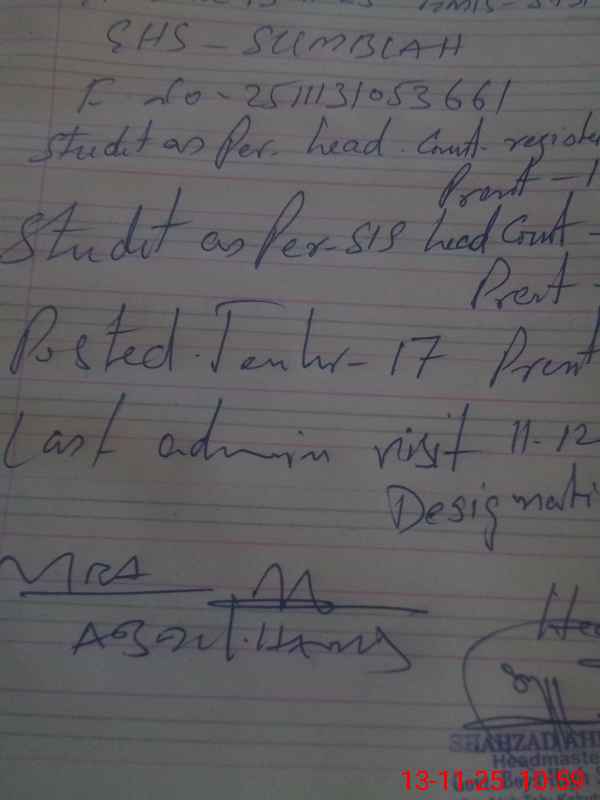 GHS - SUMBLAH
F No - 2511131053661
Studet as Per. head. Count. registe
Prent - 1
Studet as Per-SIS head Count -
Prent -
Posted. - 17 Prent
Last admin visit 11-12
Designati
MRA
Hea
SHAHZAD AH
Headmaste
13-11-25 10:59